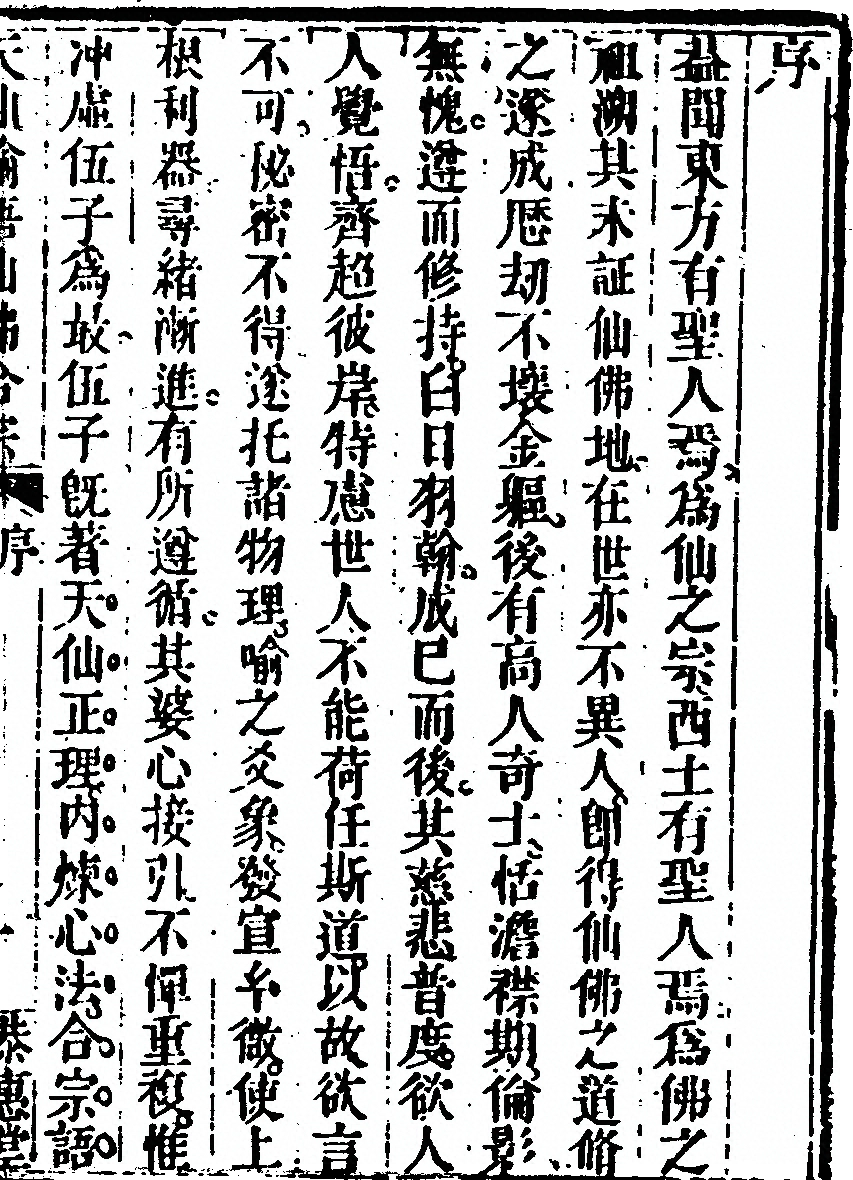 序
葢聞東方有聖人焉爲仙之宗西土有聖人焉爲佛之
祖溯其未証仙佛地在世亦不異人卽得仙佛之道脩
之遂成歷劫不壞金軀後有高人奇士恬澹襟期倫影
無愧遵而修持白日羽翰成已而後其慈悲普度欲人
人覺悟齊超彼岸特慮世人不能荷任斯道以故欲言
不可秘密不得遂托諸物理喻之爻象發宣幺微使上
根利器尋緒漸進有所遵循其婆心接引不憚重複惟
冲虛伍子爲最伍子旣著天仙正理內煉心法合宗語
天仙論語仙佛合宗 序